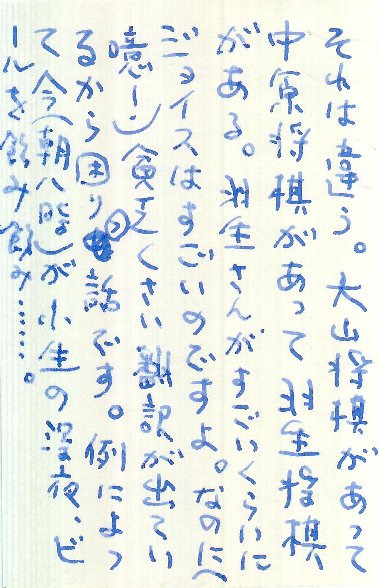 それは違う。大山将棋があって
中原将棋があって羽生将棋
がある。羽生さんがすごいくらいに
ジョイスはすごいのですよ。なのに(
噫ーン)貧乏くさい翻訳が出てい
るから困りの話です。例によっ
て今(朝八時)が小生の深夜、ビ
ールを飲み飲み……。